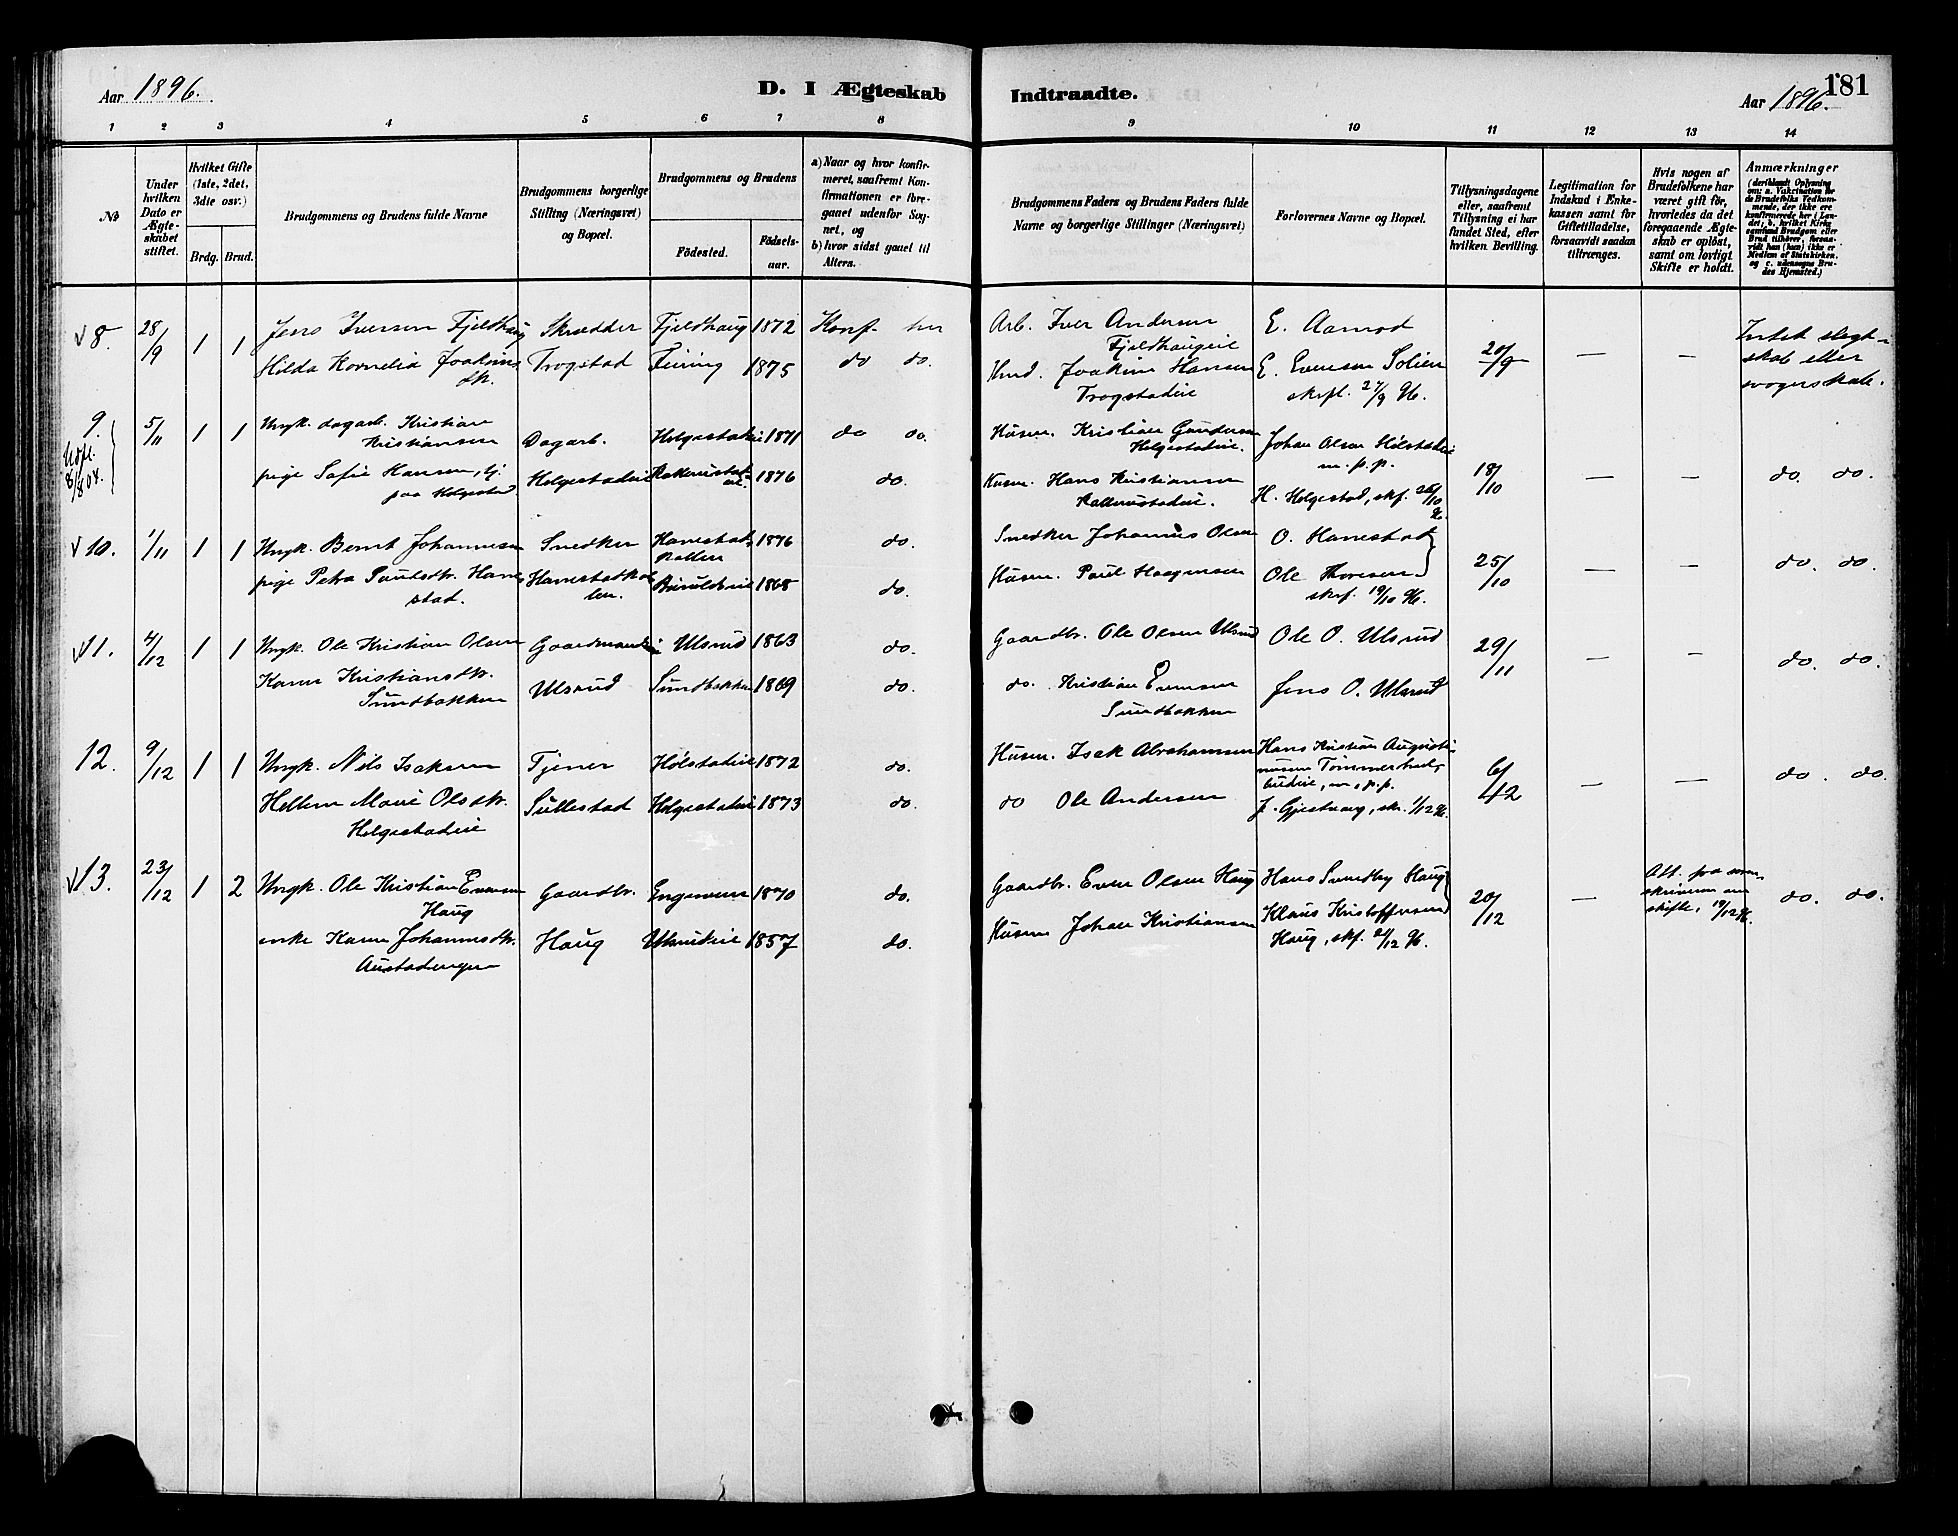 Aar 1896.
D. I Ægteskab
Indtraadte.
181
Aar 1896.
1 2 3 4 5 6 7 8 9 10 11 12 13 14
№
Under hvilken Dato er Ægteskabet stiftet.
Hvilket Gifte (1ste, 2det, 3die osv.)
Brdg. Brud.
Brudgommens og Brudens fulde Navne
Brudgommens borgerlige Stilling (Næringsvei) og Bopæl.
Brudgommens og Brudens
Födested.
Födsels-aar.
a) Naar og hvor konfirmeret, saafremt Konfirmationen er foregaaet udenfor Sognet, og
b) hvor sidst gaaet til Alters.
Brudgommens Faders og Brudens Faders fulde Navne og borgerlige Stillinger (Næringsvei)
Forlovernes Navne og Bopæl.
Tillysningsdagene eller, saafremt Tillysning ei har fundet Sted, efter hvilken Bevilling.
Legitimation for Indskud i Enkekassen samt for Giftetilladelse, forsaavidt saadan tiltrænges.
Hvis nogen af Brudefolkene har været gift før, hvorledes da det foregaaende Ægteskab er opløst, samt om lovligt Skifte er holdt.
Anmærkninger
(deriblandt Oplysning om: a. Vakcination for de Brudefolks Vedkommende, der ikke ere konfirmerede her i Landet; b. hvilket Kirkesamfund Brudgom eller Brud tilhører, forsaavidt han (hun) ikke er Medlem af Statskirken, og c. udensogns Brudes Hjemsted.)
8. 28/9 1 1 Jens Iversen Fjeldhaug Skrædder Fjeldhaug 1872 Konf. her Arb. Iver Andersen Fjeldhaugeie E. Aamod 20/9 — — Intet slegtskab eller svogerskab.
Hilda Kornelia Joakimsdt. Trogstad Feiring 1875 do do. Hmd. Joakim Hansen Trogstadeie E. Evensen Solien skrftl. 27/9 96.
9. 5/11 1 1 Ungk. dagarb. Kristian Kristiansen Dagarb. Helgestadeie 1871 do do. Husm. Kristian Gundersen Helgestadeie. Johan Olsen Holstadeie m. p. p. 18/10 — — do. do.
8/8 04.
pige Sofie Hansen, tj. paa Helgestad Helgestadeie 1876 do. Husm. Hans Kristiansen H. Helgestad, skf. 25/10 96.
10. 1/11 1 1 Ungk. Bernt Johannesen Snedker Hanestadkollen 1876 do. Snedker Johannes Olsen O. Hanestad 25/10 — — do. do.
pige Petra Paulsdtr. Hanestad. Hanestadkollen. 1868 do. Husm. Paul Haagensen Ole Thoresen skrf. 19/10 96.
11. 4/12 1 1 Ungk. Ole Kristian Olsen Ulsrud 1863 do. Gaardbr. Ole Olsen Ulsrud Ole O. Ulsrud 29/11 — — do. do.
Karen Kristiansdtr. Sundbakken Ulsrud Sundbakken 1869 do. do. Kristian Evensen Sundbakken Jens O. Ulsrud
12. 9/12 1 1 Ungk. Nils Isaksen Tjener Holstadeie 1872 do. Husm. Isak Abrahamsen Hans Kristian Augustinusen m. p. p. 6/12 — — do. do.
Hellene Marie Olsdtr. Helgestadeie Sullestad Helgestadeie 1873 do. do Ole Andersen J. Gjestvang, skr. 1/12 96.
13. 23/12 1 2 Ungk. Ole Kristian Evensen Haug Gaardbr. Engeneren 1870 do. Gaardbr. Even Olsen Haug Hans Sundby Haug 20/12 — Att. fra sorenskriveren om skifte, 19/12 96. do. do.
enke Karen Johannesdtr. Austadengen Haug Ulsrudeie 1857 do. Husm Johan Kristiansen Klaus Kristoffersen Haug, skf. 21/12 96.